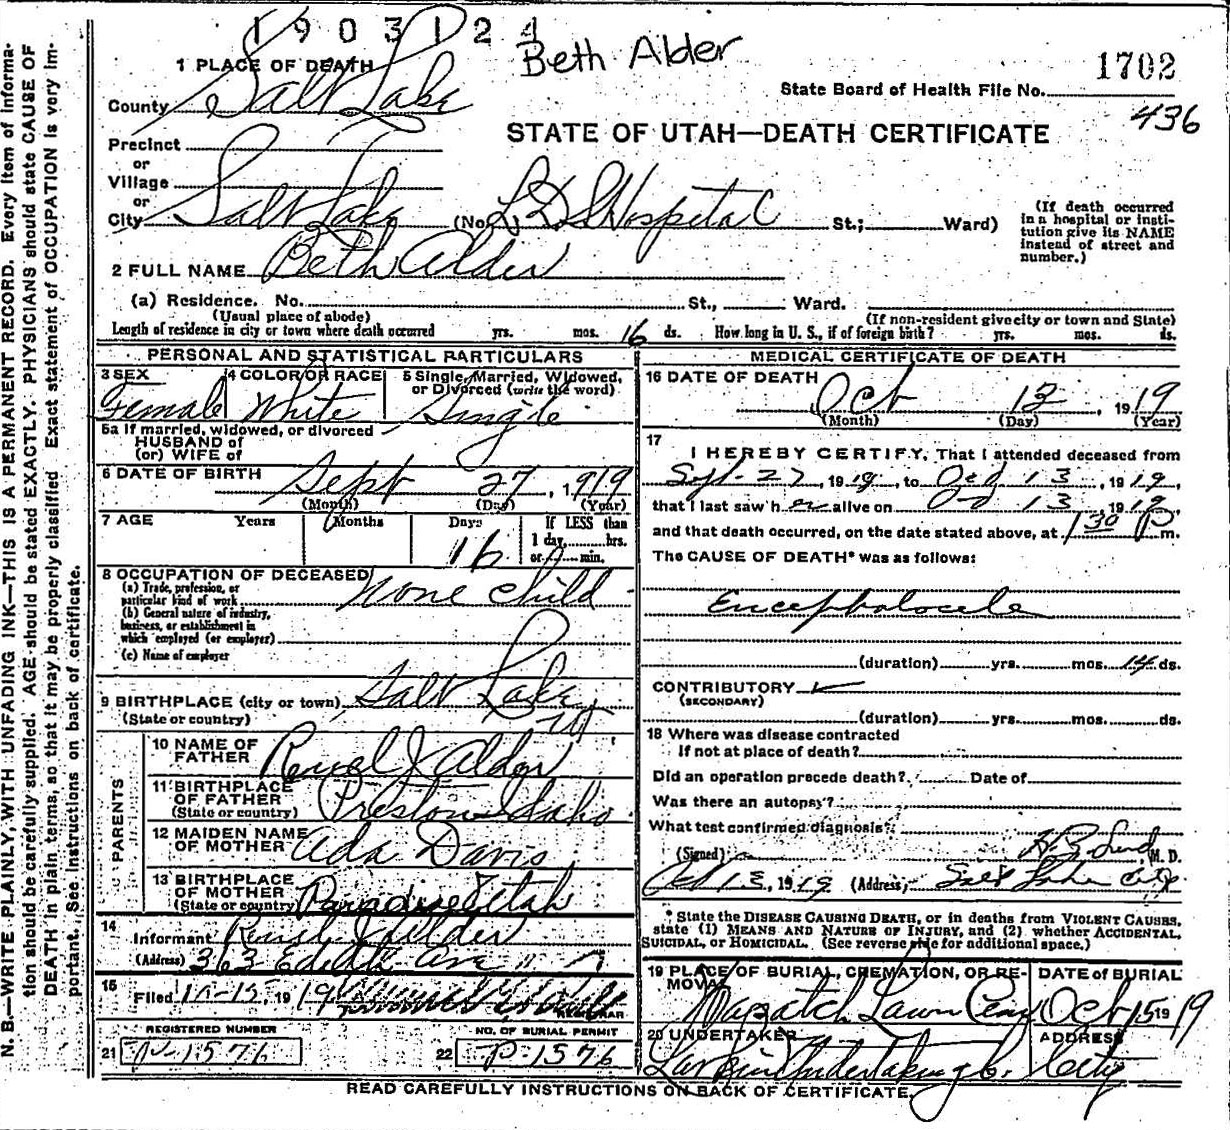 1903124
Beth Alder
1702
State Board of Health File No.
436
1 PLACE OF DEATH
County Salt Lake
STATE OF UTAH—DEATH CERTIFICATE
Precinct
or
Village
or
City Salt Lake (No. L D S Hospital St.; Ward)
(If death occurred in a hospital or institution give its NAME instead of street and number.)
2 FULL NAME Beth Alder
(a) Residence. No. St., Ward.
(Usual place of abode) (If non-resident give city or town and State)
Length of residence in city or town where death occurred yrs. mos. 16 ds. How long in U. S., if of foreign birth? yrs. mos. ds.
PERSONAL AND STATISTICAL PARTICULARS
3 SEX Female
4 COLOR OR RACE White
5 Single, Married, Widowed, or Divorced (write the word) Single
5a If married, widowed, or divorced
HUSBAND of
(or) WIFE of
6 DATE OF BIRTH Sept 27, 1919
(Month) (Day) (Year)
7 AGE Years Months Days 16 If LESS than 1 day, hrs. or min.
8 OCCUPATION OF DECEASED None Child
(a) Trade, profession, or particular kind of work
(b) General nature of industry, business, or establishment in which employed (or employer)
(c) Name of employer
9 BIRTHPLACE (city or town) Salt Lake
(State or country) Ut
PARENTS
10 NAME OF FATHER J Alder
11 BIRTHPLACE OF FATHER (State or country) Preston Idaho
12 MAIDEN NAME OF MOTHER Ada Davis
13 BIRTHPLACE OF MOTHER (State or country) Paradise Utah
14 Informant J Alder
(Address) 363 Edith Ave
15 Filed 10-15, 1919 REGISTRAR
REGISTERED NUMBER
21 P-1576
NO. OF BURIAL PERMIT
22 P-1576
MEDICAL CERTIFICATE OF DEATH
16 DATE OF DEATH Oct 13, 1919
(Month) (Day) (Year)
17 I HEREBY CERTIFY, That I attended deceased from
Sept. 27, 1919, to Oct 13, 1919,
that I last saw h er alive on Oct 13, 1919,
and that death occurred, on the date stated above, at 1 30 P m.
The CAUSE OF DEATH* was as follows:
Encephalocele
(duration) yrs. mos. 14 ds.
CONTRIBUTORY
(SECONDARY)
(duration) yrs. mos. ds.
18 Where was disease contracted
If not at place of death?
Did an operation precede death? Date of
Was there an autopsy?
What test confirmed diagnosis?
(Signed) Lund M. D.
Oct 13, 1919 (Address) Salt Lake City
* State the DISEASE CAUSING DEATH, or in deaths from VIOLENT CAUSES,
state (1) MEANS AND NATURE OF INJURY, and (2) whether ACCIDENTAL,
SUICIDAL, or HOMICIDAL. (See reverse side for additional space.)
19 PLACE OF BURIAL, CREMATION, OR REMOVAL Wasatch Lawn Cem
DATE of BURIAL Oct 15 1919
20 UNDERTAKER Larkin Undertaking Co.
ADDRESS City
READ CAREFULLY INSTRUCTIONS ON BACK OF CERTIFICATE.
N. B.—WRITE PLAINLY, WITH UNFADING INK—THIS IS A PERMANENT RECORD. Every item of informa-
tion should be carefully supplied. AGE should be stated EXACTLY. PHYSICIANS should state CAUSE OF
DEATH in plain terms, so that it may be properly classified. Exact statement of OCCUPATION is very im-
portant. See instructions on back of certificate.